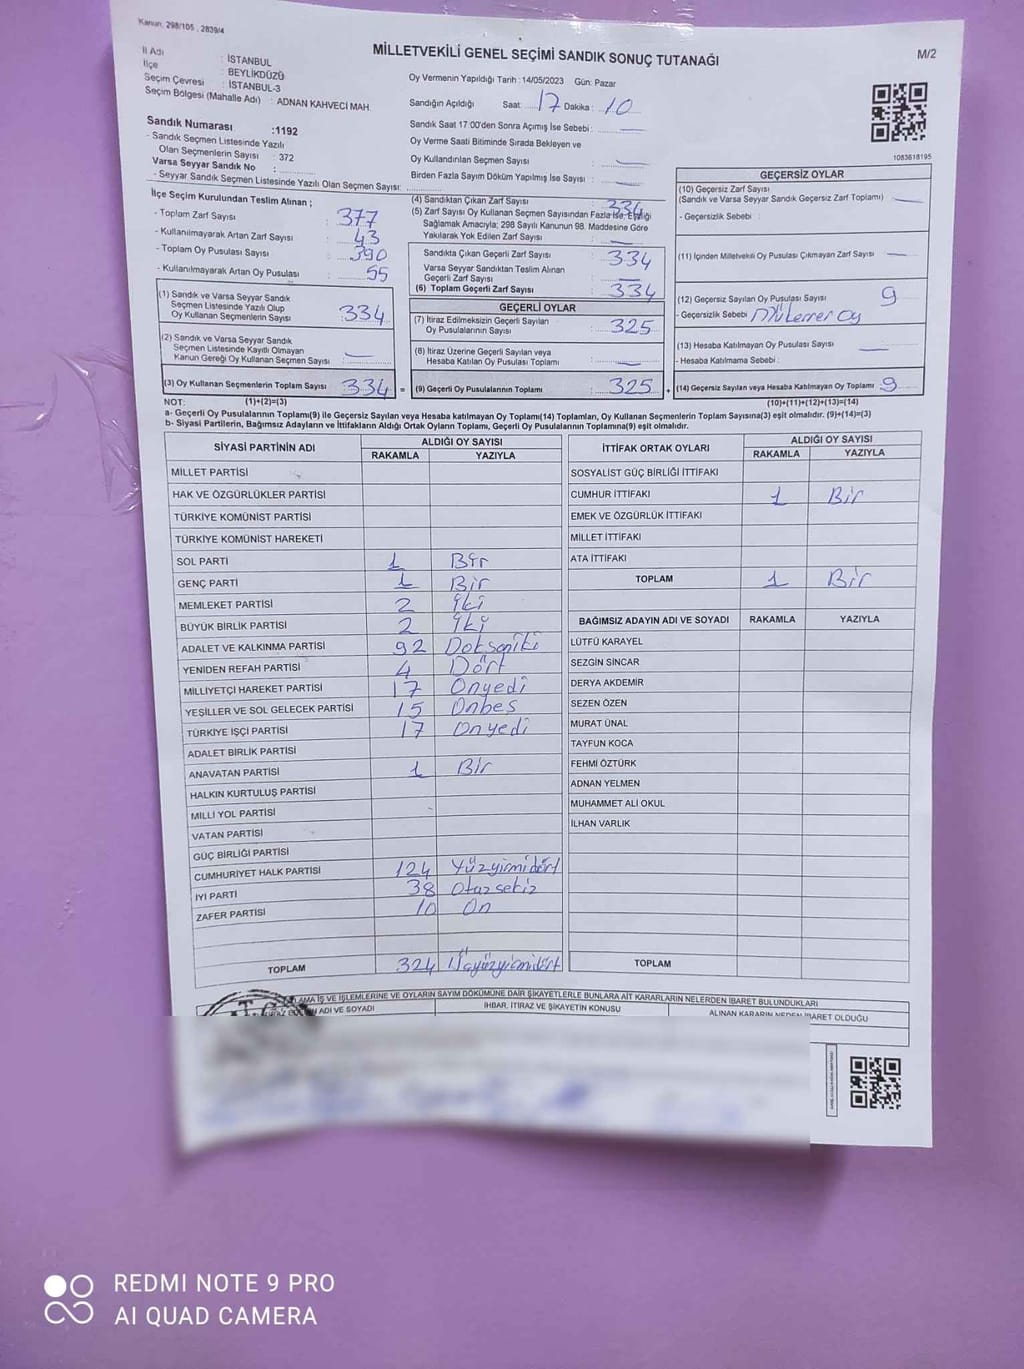 Kanun, 298/105, 2839/4
MİLLETVEKİLİ GENEL SEÇİMİ SANDIK SONUÇ TUTANAĞI
M/2
İl Adı : İSTANBUL
İlçe : BEYLİKDÜZÜ
Seçim Çevresi : İSTANBUL-3
Seçim Bölgesi (Mahalle Adı) : ADNAN KAHVECİ MAH.
Oy Vermenin Yapıldığı Tarih : 14/05/2023 Gün: Pazar
Sandığın Açıldığı Saat : 17 Dakika : 10
Sandık Saat 17:00'den Sonra Açılmış İse Sebebi :
Oy Verme Saati Bitiminde Sırada Bekleyen ve
Oy Kullandırılan Seçmen Sayısı :
Birden Fazla Sayım Döküm Yapılmış İse Sayısı :
1083618195
Sandık Numarası :1192
- Sandık Seçmen Listesinde Yazılı
Olan Seçmenlerin Sayısı : 372
Varsa Seyyar Sandık No :
- Seyyar Sandık Seçmen Listesinde Yazılı Olan Seçmen Sayısı:
İlçe Seçim Kurulundan Teslim Alınan ;
- Toplam Zarf Sayısı : 377
- Kullanılmayarak Artan Zarf Sayısı : 43
- Toplam Oy Pusulası Sayısı : 390
- Kullanılmayarak Artan Oy Pusulası : 55
(1) Sandık ve Varsa Seyyar Sandık
Seçmen Listesinde Yazılı Olup
Oy Kullanan Seçmenlerin Sayısı : 334
(2) Sandık ve Varsa Seyyar Sandık
Seçmen Listesinde Kayıtlı Olmayan
Kanun Gereği Oy Kullanan Seçmen Sayısı :
(3) Oy Kullanan Seçmenlerin Toplam Sayısı : 334 =
(4) Sandıktan Çıkan Zarf Sayısı : 334
(5) Zarf Sayısı Oy Kullanan Seçmen Sayısından Fazla İse, Eşitliği
Sağlamak Amacıyla; 298 Sayılı Kanunun 98. Maddesine Göre
Yakılarak Yok Edilen Zarf Sayısı :
Sandıkta Çıkan Geçerli Zarf Sayısı : 334
Varsa Seyyar Sandıktan Teslim Alınan
Geçerli Zarf Sayısı :
(6) Toplam Geçerli Zarf Sayısı : 334
GEÇERLİ OYLAR
(7) İtiraz Edilmeksizin Geçerli Sayılan
Oy Pusulalarının Sayısı : 325
(8) İtiraz Üzerine Geçerli Sayılan veya
Hesaba Katılan Oy Pusulası Toplamı :
(9) Geçerli Oy Pusulalarının Toplamı : 325 +
GEÇERSİZ OYLAR
(10) Geçersiz Zarf Sayısı
(Sandık ve Varsa Seyyar Sandık Geçersiz Zarf Toplamı) :
- Geçersizlik Sebebi :
(11) İçinden Milletvekili Oy Pusulası Çıkmayan Zarf Sayısı :
(12) Geçersiz Sayılan Oy Pusulası Sayısı : 9
- Geçersizlik Sebebi : Mükerrer oy
(13) Hesaba Katılmayan Oy Pusulası Sayısı :
- Hesaba Katılmama Sebebi :
(14) Geçersiz Sayılan veya Hesaba Katılmayan Oy Toplamı : 9
NOT: (1)+(2)=(3)
(10)+(11)+(12)+(13)=(14)
a- Geçerli Oy Pusulalarının Toplamı(9) ile Geçersiz Sayılan veya Hesaba Katılmayan Oy Toplamı(14) Toplamları, Oy Kullanan Seçmenlerin Toplam Sayısına(3) eşit olmalıdır. (9)+(14)=(3)
b- Siyasi Partilerin, Bağımsız Adayların ve İttifakların Aldığı Ortak Oyların Toplamı, Geçerli Oy Pusulalarının Toplamına(9) eşit olmalıdır.
SİYASİ PARTİNİN ADI ALDIĞI OY SAYISI
RAKAMLA YAZIYLA
MİLLET PARTİSİ
HAK VE ÖZGÜRLÜKLER PARTİSİ
TÜRKİYE KOMÜNİST PARTİSİ
TÜRKİYE KOMÜNİST HAREKETİ
SOL PARTİ 1 Bir
GENÇ PARTİ 1 Bir
MEMLEKET PARTİSİ 2 İki
BÜYÜK BİRLİK PARTİSİ 2 İki
ADALET VE KALKINMA PARTİSİ 92 Doksaniki
YENİDEN REFAH PARTİSİ 4 Dört
MİLLİYETÇİ HAREKET PARTİSİ 17 Onyedi
YEŞİLLER VE SOL GELECEK PARTİSİ 15 Onbeş
TÜRKİYE İŞÇİ PARTİSİ 17 Onyedi
ADALET BİRLİK PARTİSİ
ANAVATAN PARTİSİ 1 Bir
HALKIN KURTULUŞ PARTİSİ
MİLLİ YOL PARTİSİ
VATAN PARTİSİ
GÜÇ BİRLİĞİ PARTİSİ
CUMHURİYET HALK PARTİSİ 124 Yüzyirmidört
İYİ PARTİ 38 Otuzsekiz
ZAFER PARTİSİ 10 On
TOPLAM 324 Üçyüzyirmidört
İTTİFAK ORTAK OYLARI ALDIĞI OY SAYISI
RAKAMLA YAZIYLA
SOSYALİST GÜÇ BİRLİĞİ İTTİFAKI
CUMHUR İTTİFAKI 1 Bir
EMEK VE ÖZGÜRLÜK İTTİFAKI
MİLLET İTTİFAKI
ATA İTTİFAKI
TOPLAM 1 Bir
BAĞIMSIZ ADAYIN ADI VE SOYADI RAKAMLA YAZIYLA
LÜTFÜ KARAYEL
SEZGİN SİNCAR
DERYA AKDEMİR
SEZEN ÖZEN
MURAT ÜNAL
TAYFUN KOCA
FEHMİ ÖZTÜRK
ADNAN YELMEN
MUHAMMET ALİ OKUL
İLHAN VARLIK
TOPLAM
İŞ VE İŞLEMLERİNE VE OYLARIN SAYIM DÖKÜMÜNE DAİR ŞİKAYETLERLE BUNLARA AİT KARARLARIN NELERDEN İBARET BULUNDUKLARI
ADI VE SOYADI İHBAR, İTİRAZ VE ŞİKAYETİN KONUSU ALINAN KARARIN NEDEN İBARET OLDUĞU
REDMI NOTE 9 PRO
AI QUAD CAMERA